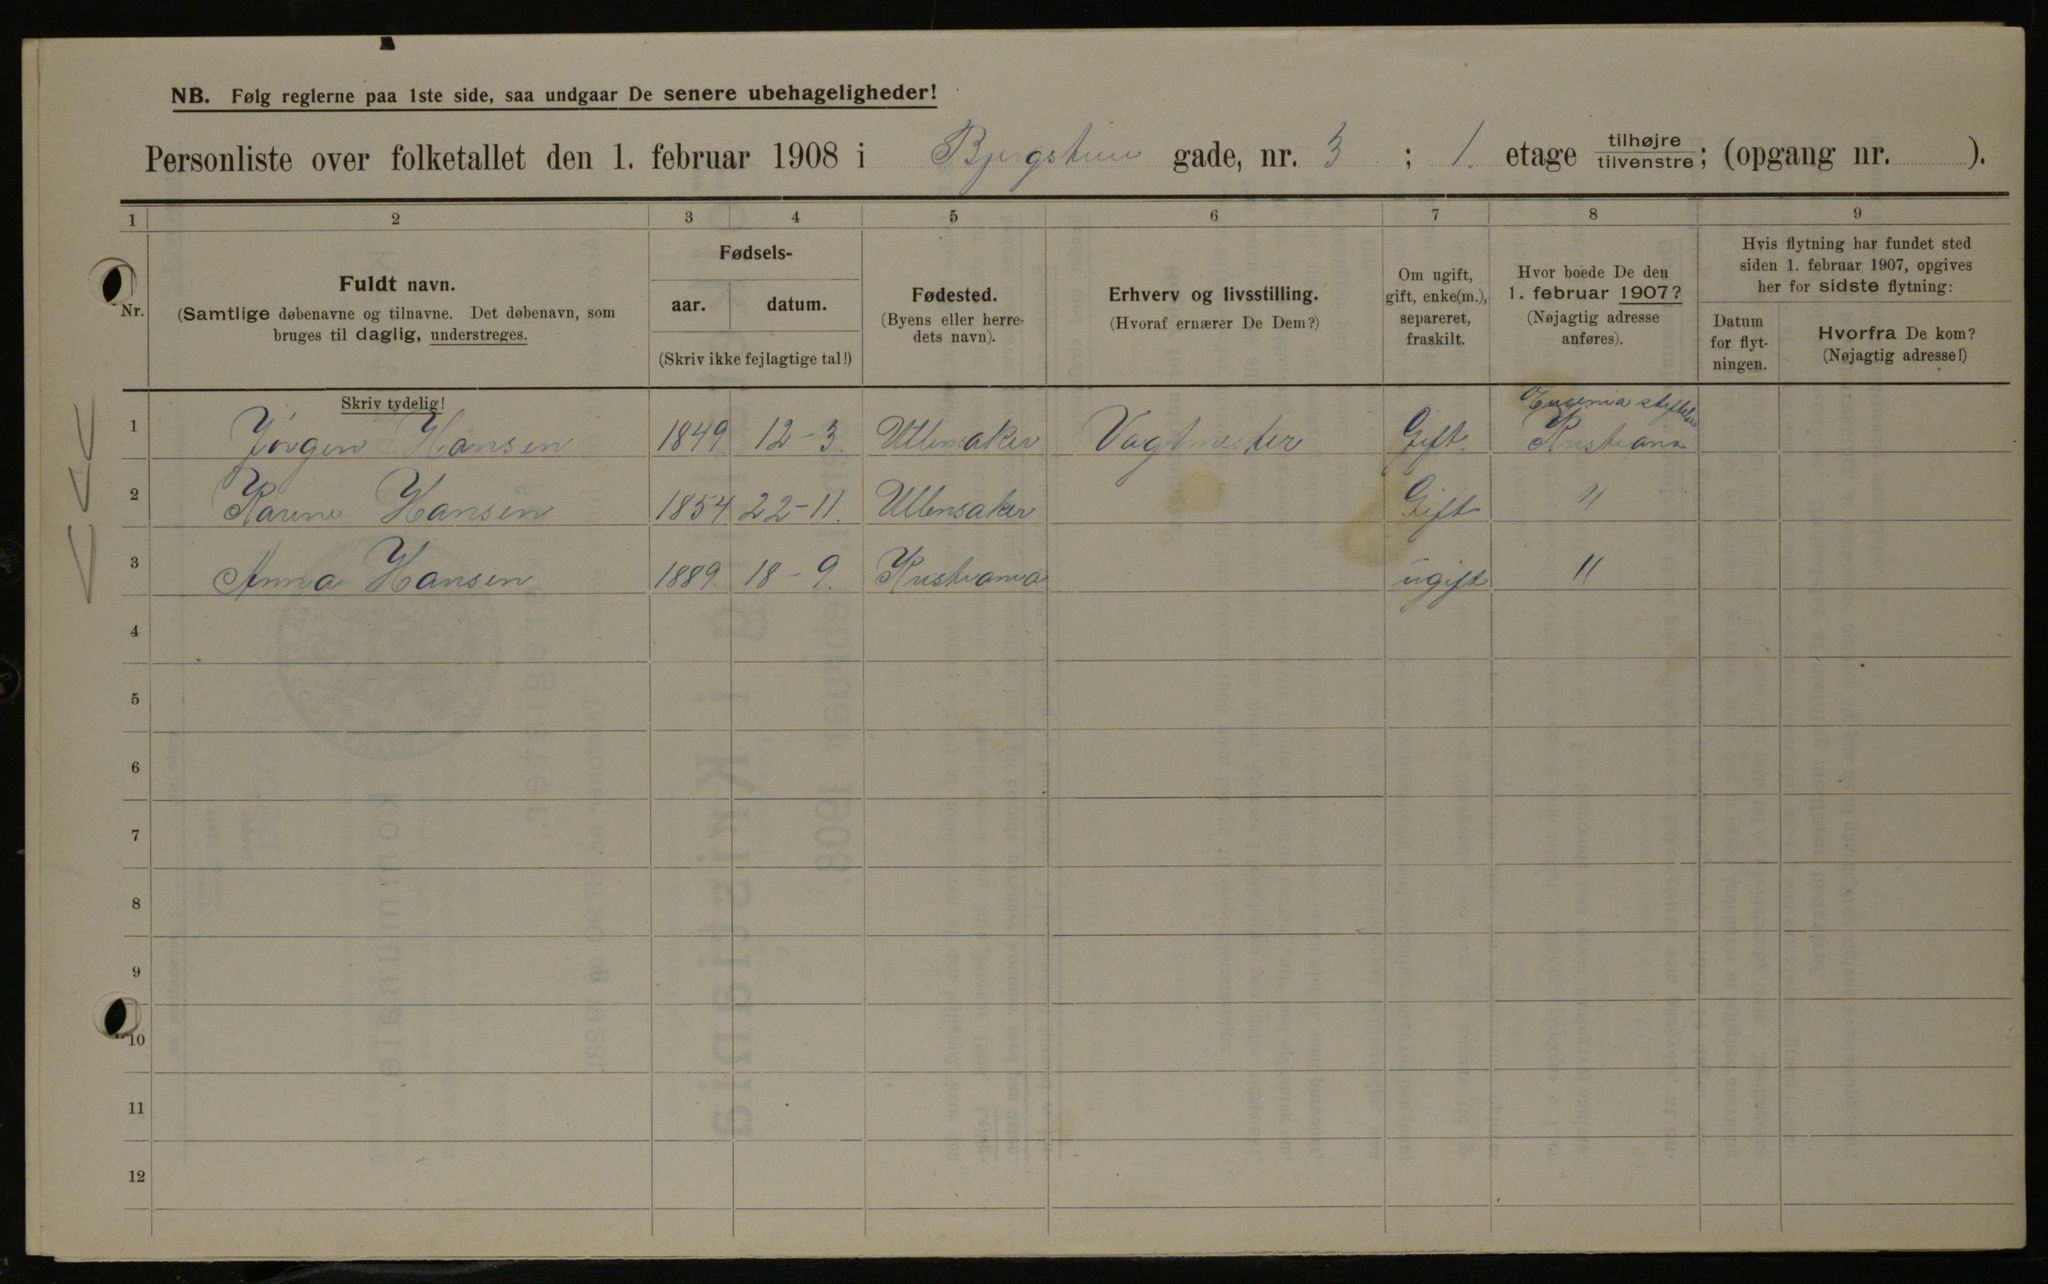 NB. Følg reglerne paa 1ste side, saa undgaar De senere ubehageligheder!
Personliste over folketallet den 1. februar 1908 i Bjergstien gade, nr. 3 ; 1. etage tilhøjre tilvenstre; (opgang nr. ).
1 2 3 4 5 6 7 8 9
Nr.
Fuldt navn.
(Samtlige døbenavne og tilnavne. Det døbenavn, som
bruges til daglig, understreges.
Skriv tydelig!
Fødsels-
aar. datum.
(Skriv ikke fejlagtige tal!)
Fødested.
(Byens eller herre-
dets navn).
Erhverv og livsstilling.
(Hvoraf ernærer De Dem?)
Om ugift,
gift, enke(m.),
separeret,
fraskilt.
Hvor boede De den
1. februar 1907?
(Nøjagtig adresse
anføres).
Hvis flytning har fundet sted
siden 1. februar 1907, opgives
her for sidste flytning:
Datum
for flyt-
ningen.
Hvorfra De kom?
(Nøjagtig adresse!)
Eugenia stiftelse
1 Jørgen Hansen 1849 12-3. Ullensaker Vagtmester Gift. Kristiania
2 Karine Hansen 1854 22-11. Ullensaker Gift "
3 Anna Hansen 1889. 18-9. Kristiania ugift "
4
5
6
7
8
9
10
11
12